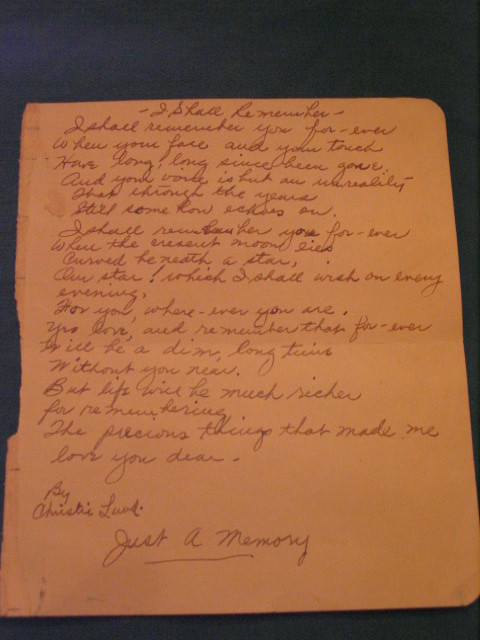 - I Shall Remember -
I shall remember you for-ever
When your face and your touch
Have long, long since been gone,
And your voice is but an unreality
That through the years
Still some how echoes on.
I shall remember you for-ever
When the cresent moon lies
Curved beneath a star,
Our star! which I shall wish on every
evening,
For you, where-ever you are.
Yes love, and remember that for-ever
Will be a dim, long time
Without you near.
But life will be much richer
for remembering
The precious things that made me
love you dear.
By
Christie
Just A Memory